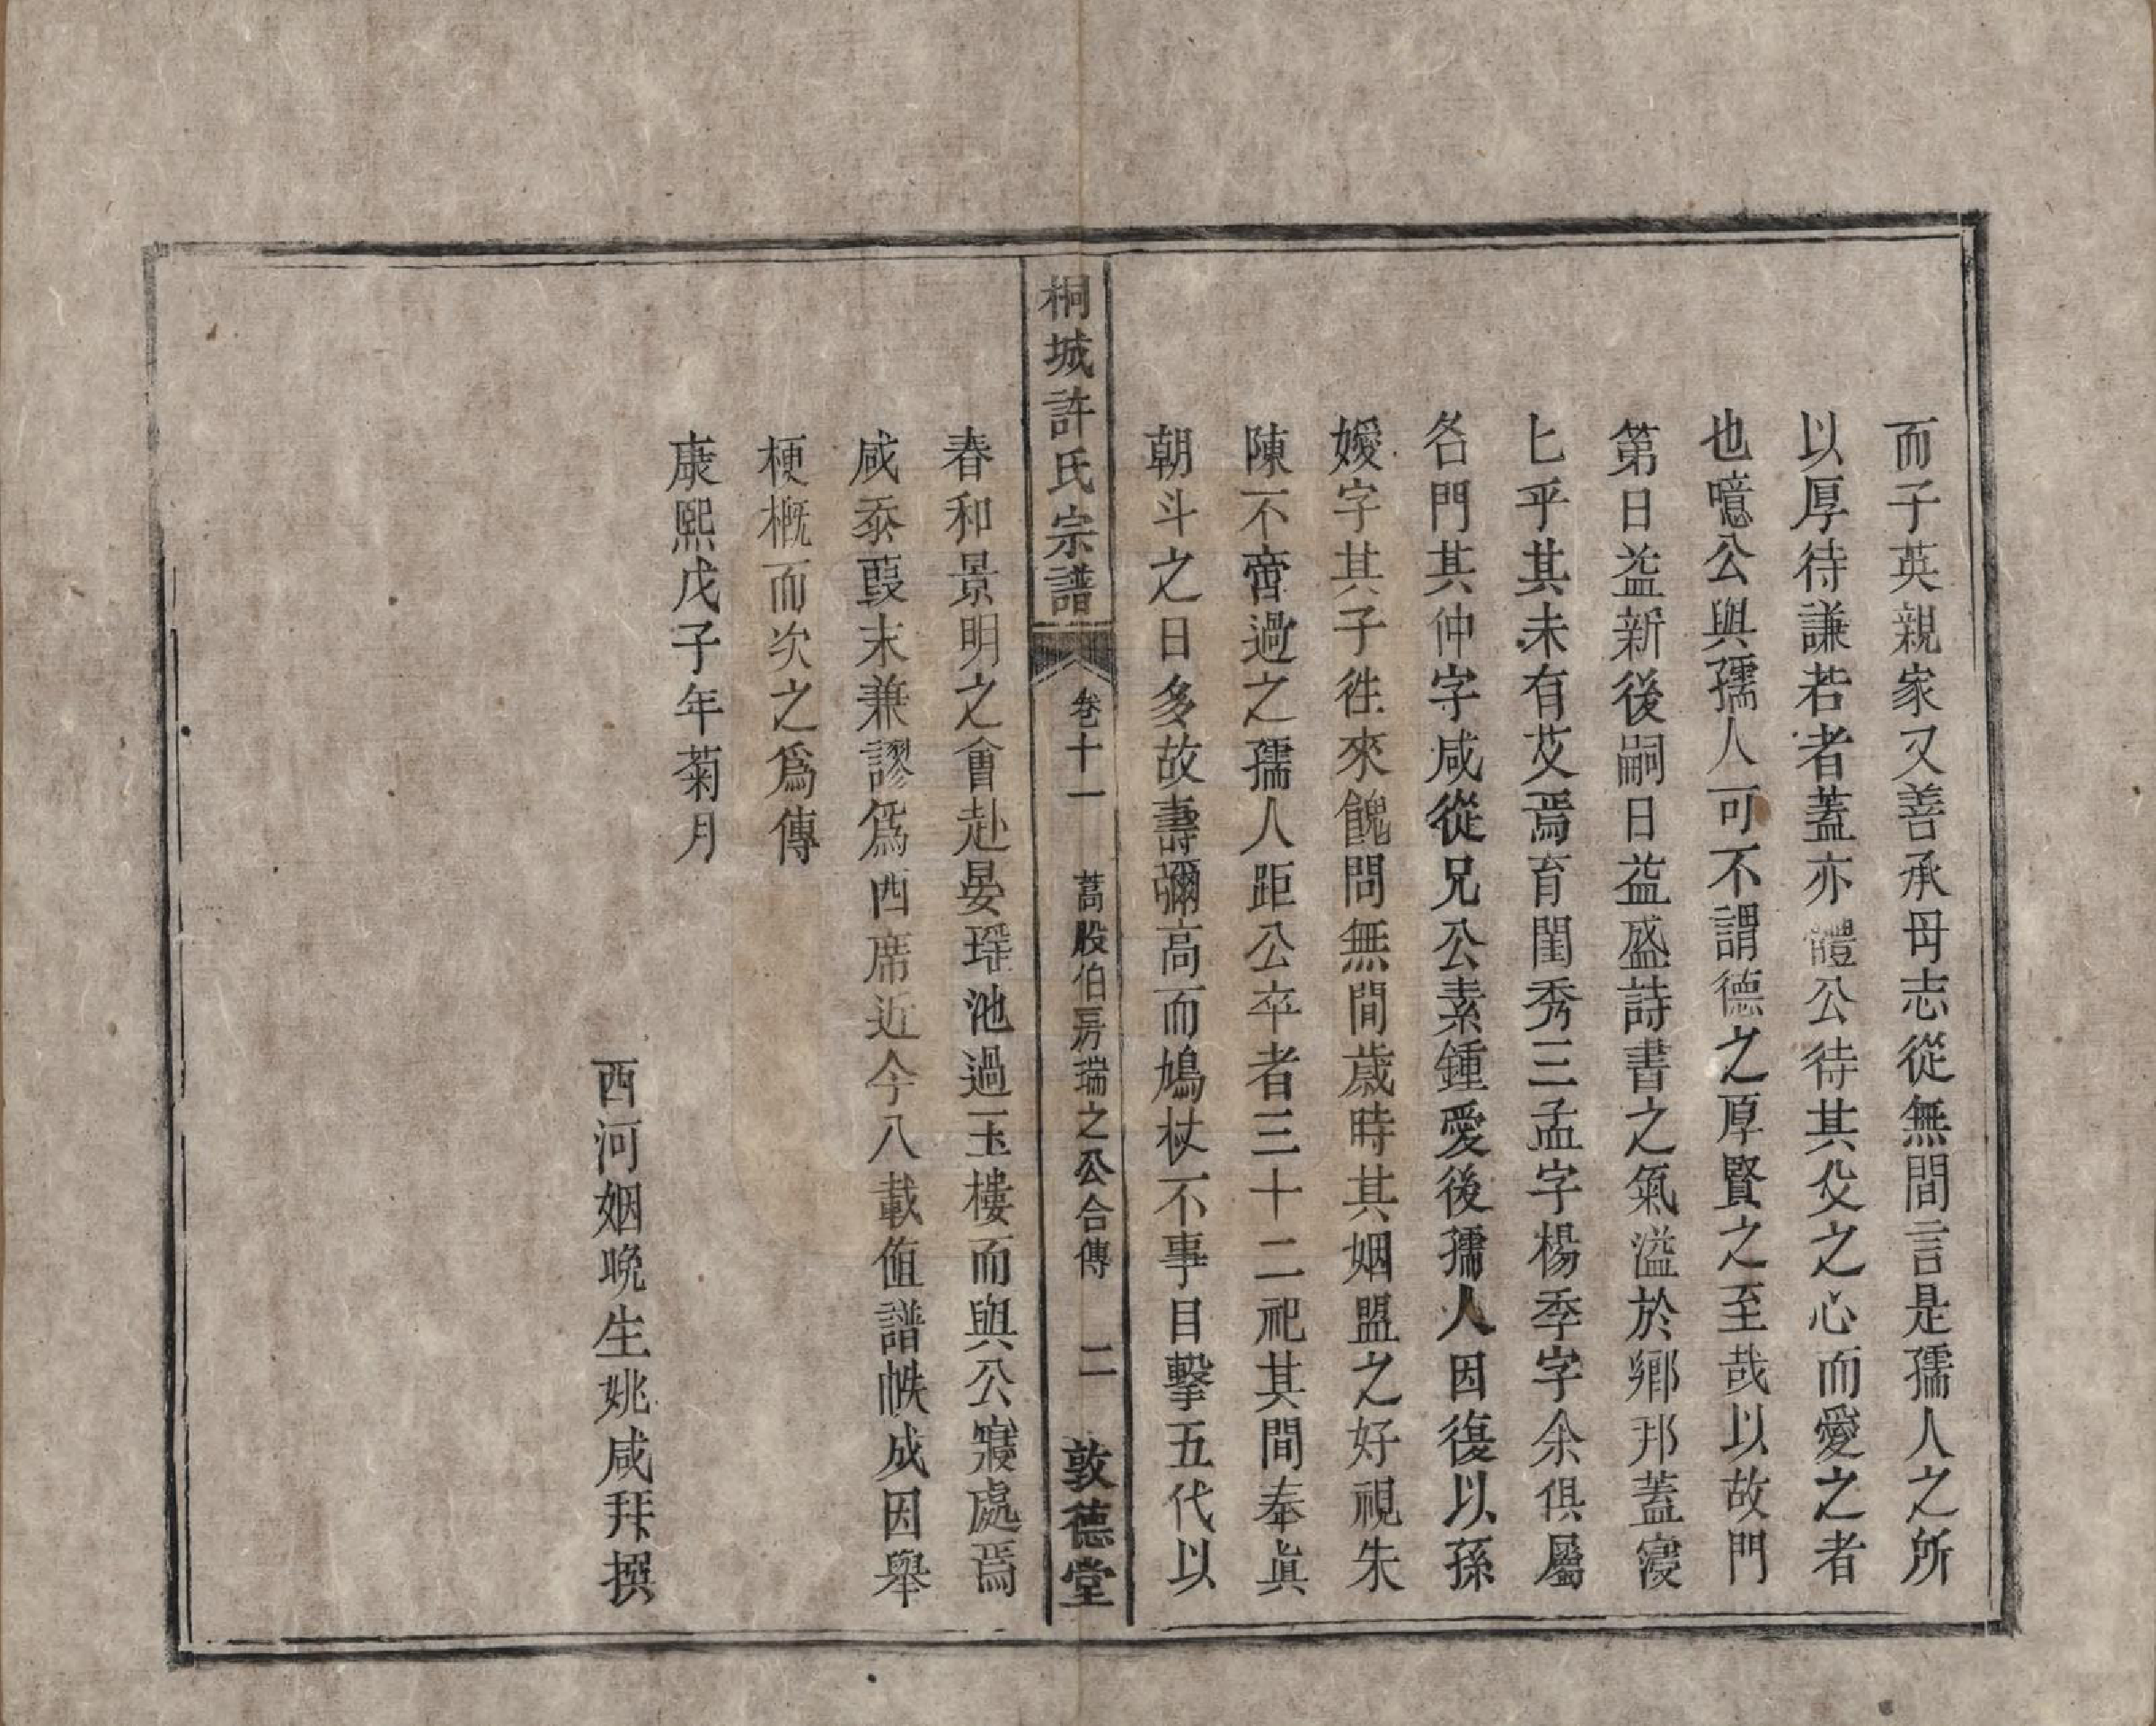 而子英親家又善承母志從無間言是孺人之所
以厚待謙若者蓋亦體公待其父之心而愛之者
也噫公與孺人可不謂德之厚賢之至哉以故門
第日益新後嗣日益盛詩書之氣溢於鄉邦蓋寖
匕乎其未有艾焉育閨秀三孟字楊季字余俱屬
名門其仲字咸從兄公素鍾愛後孺人因復以孫
嫒字其子徃來餽問無間歲時其姻盟之好視朱
陳不啻過之孺人距公卒者三十二祀其間奉眞
朝斗之日多故壽彌高而鳩杖不事目擊五代以
桐城許氏宗譜 卷十一 蒿股伯房瑞之公合傳 二 敦德堂
春和景明之會赴晏瑤池過玉樓而與公寢處焉
咸忝葭末兼謬爲西席近今八載值譜帙成因舉
梗概而次之爲傳
康熙戊子年菊月
西河姻晚生姚咸拜撰